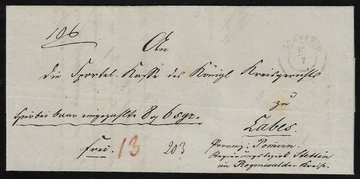 106
An
die Sportel-Kasse des Königl Kreisgerichts
zu
hierbei baar eingezahlte 8 rg 6 sgr.
Labes.
frei. 13 203
Provinz: Pomern
Regierungsbezirk Stettin
im Regenwalder Kreise.